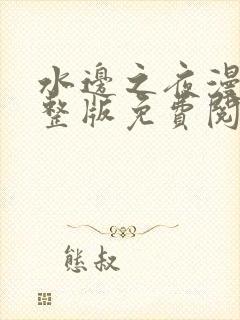 水邊之夜漫
整版免費閱
熊叔